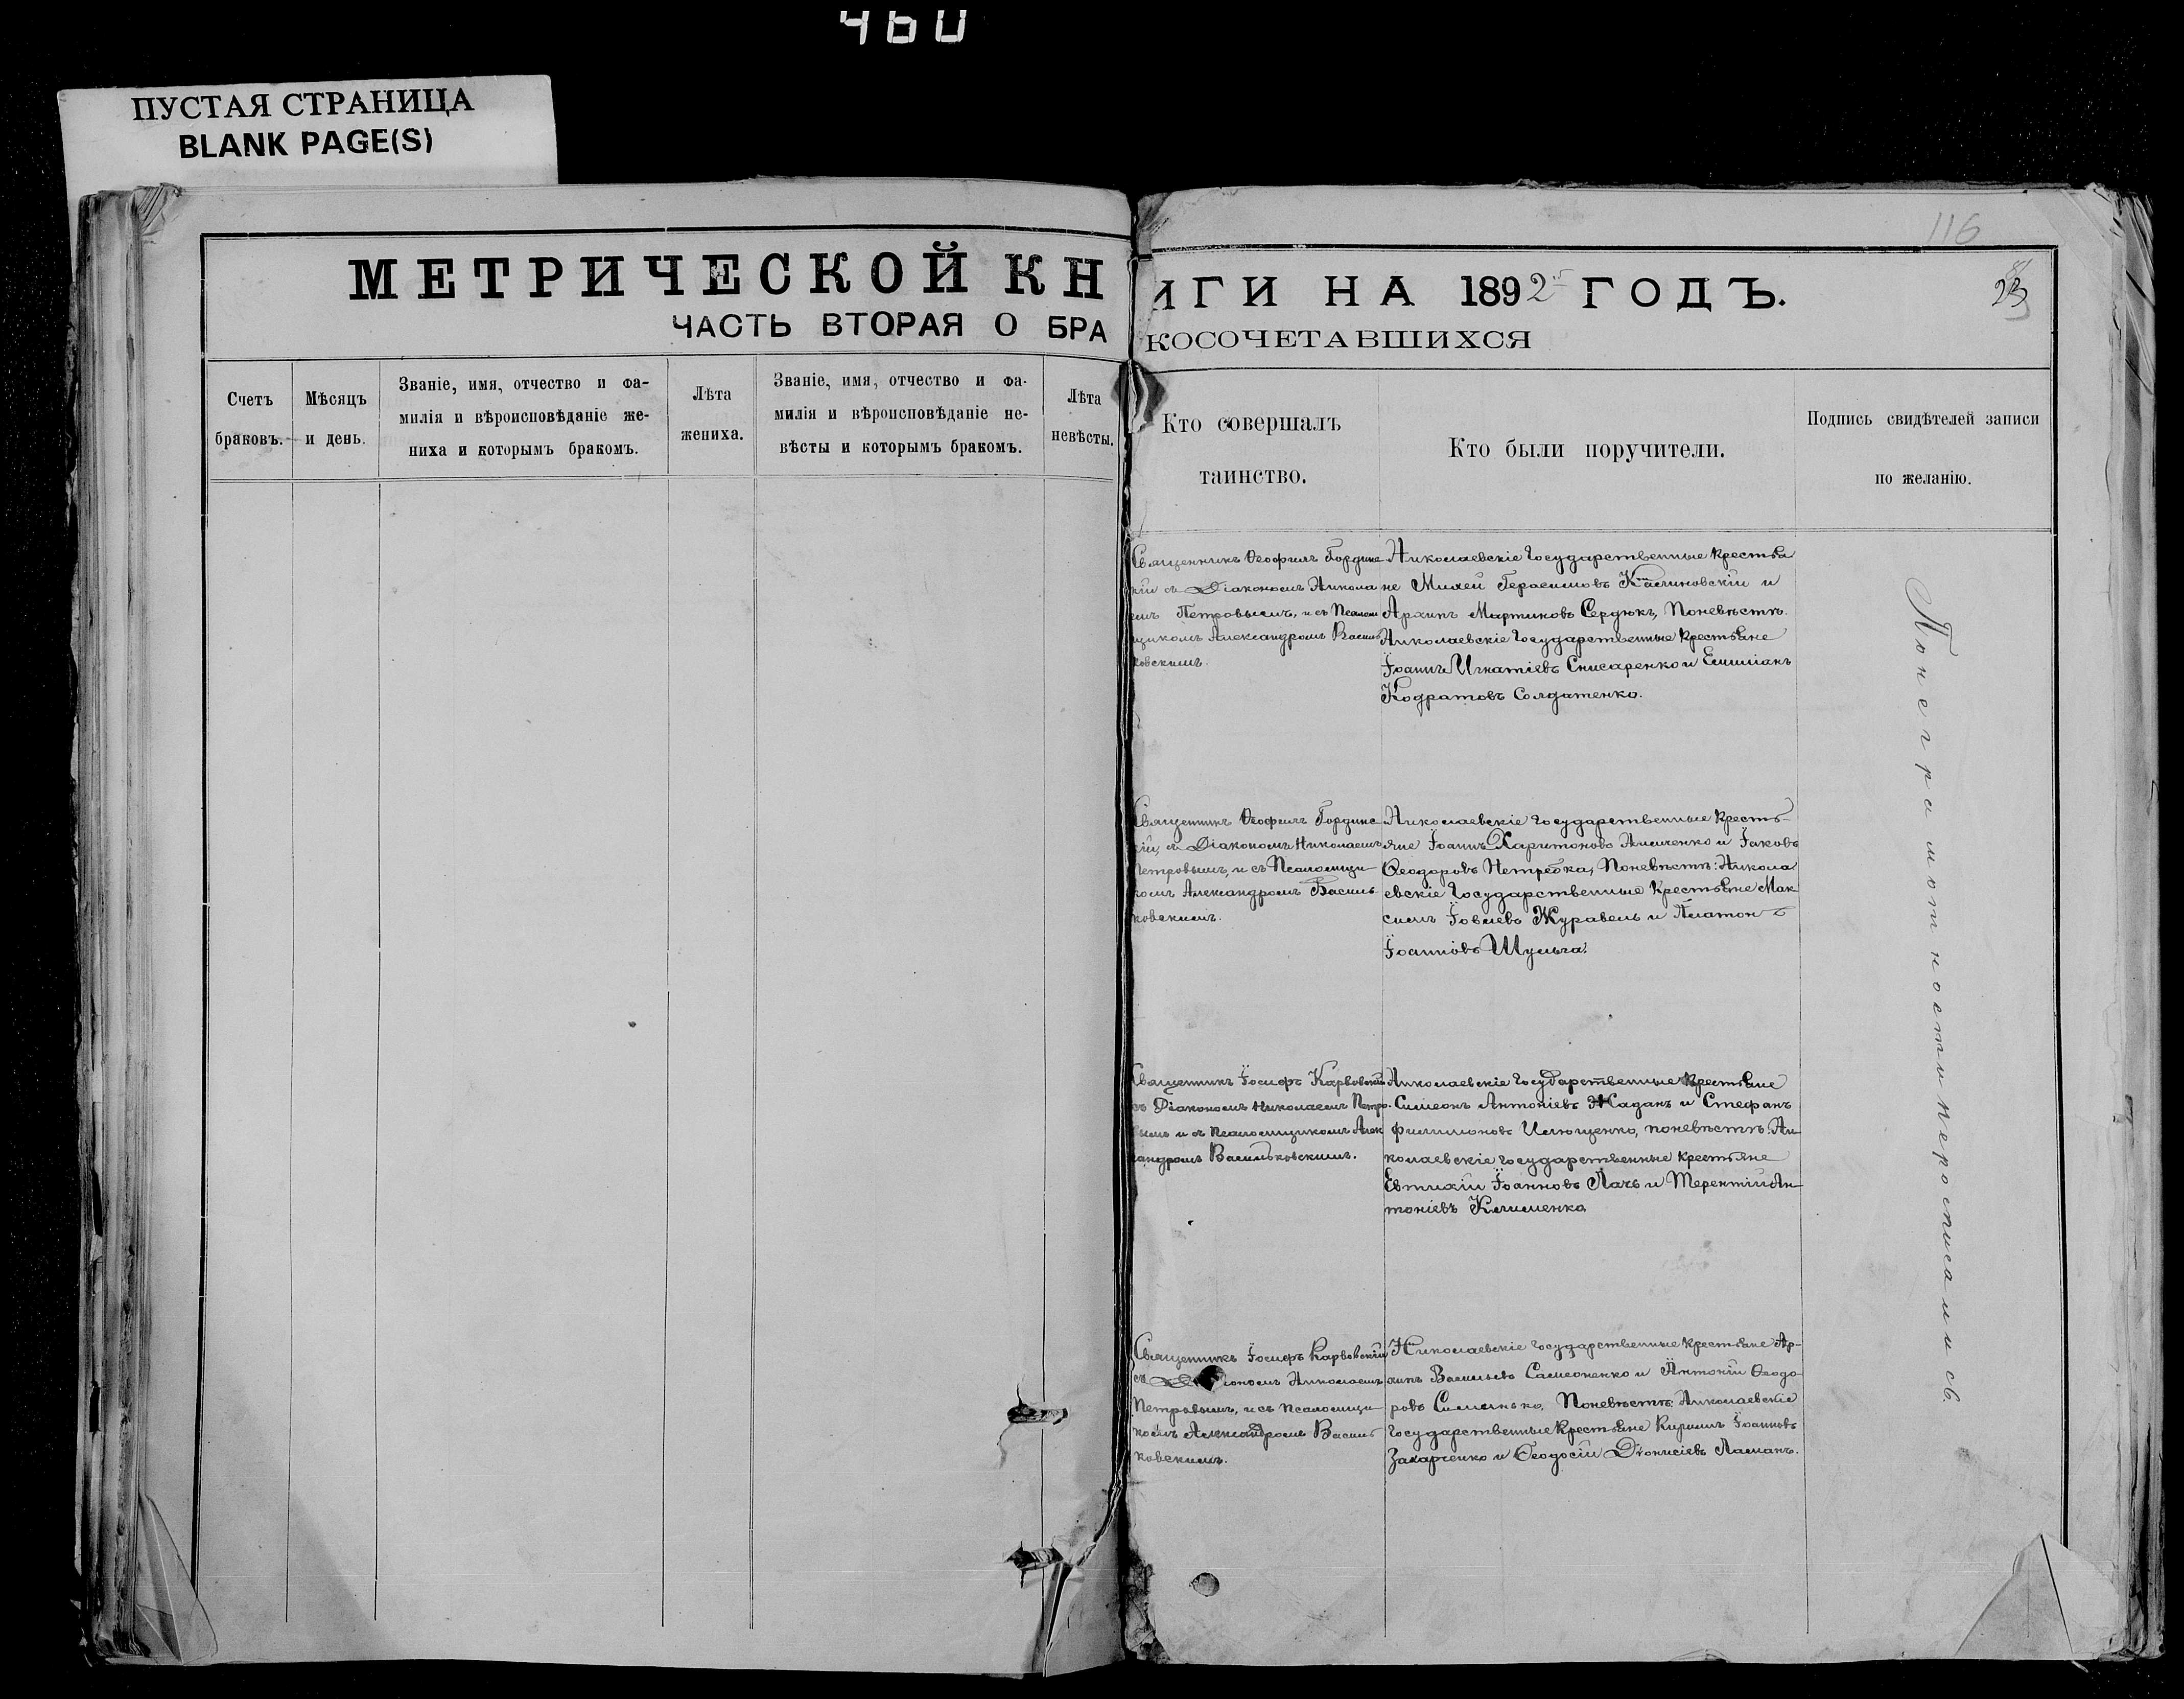 460
ПУСТАЯ СТРАНИЦА
BLANK PAGE(S)
116
МЕТРИЧЕСКОЙ КН
ИГИ НА 1892 ГОДЪ.
23
ЧАСТЬ ВТОРАЯ О БРА
КОСОЧЕТАВШИХСЯ
Счетъ
браковъ.
Мѣсяцъ
и день.
Званіе, имя, отчество и фа-
милія и вѣроисповѣданіе же-
ниха и которымъ бракомъ.
Лѣта
жениха.
Званіе, имя, отчество и фа-
милія и вѣроисповѣданіе не-
вѣсты и которымъ бракомъ.
Лѣта
невѣсты.
Кто совершалъ
таинство.
Кто были поручители.
Подпись свидѣтелей записи
по желанію.
Священникъ Ѳеофилъ Гординс
кій съ Діакономъ Никола
емъ Петровымъ, и съ Псалом
щикомъ Александромъ Василь
ковскимъ.
Николаевскіе Государственные крестья
не Михей Герасимовъ Калиновскій и
Архипъ Мартиновъ Сердюкъ, Поневѣстѣ.
Николаевскіе Государственные крестьяне
Іоаннъ Игнатіевъ Снисаренко и Емиліанъ
Кодратовъ Солдатенко.
Священникъ Ѳеофилъ Гординс
кій, съ Діакономъ Николаемъ
Петровымъ, и съ Псаломщи
комъ Александромъ Василь
ковскимъ.
Николаевскіе Государственные кресть-
яне Іоаннъ Харитоновъ Климченко и Іаковъ
Ѳеодоровъ Нетребка, Поневѣстѣ: Никола
евскіе Государственные крестьяне Мак
симъ Іовлевъ Журавель и Платонъ
Іоанновъ Шульга.
Священникъ Іосифъ Карвовскій
съ Діакономъ Николаемъ Петро
вымъ и съ псаломщикомъ Алек
сандромъ Васильковскимъ.
Николаевскіе Государственные крестьяне
Симеонъ Антоніевъ Жаданъ и Стефанъ
Филимоновъ Ильющенко, поневѣстѣ: Ни-
колаевскіе государственные крестьяне
Евтихій Іоанновъ Лачь и Терентій Ан-
тоніевъ Клименко
Священникъ Іосифъ Карвовскій
съ Діакономъ Николаемъ
Петровымъ, и съ Псаломщи
комъ Александромъ Василь
ковскимъ.
Николаевскіе государственные крестьяне Ар-
хипъ Васильевъ Самсоненко и Антоній Ѳеодо
ровъ Симанько, Поневѣстѣ: Николаевскіе
Государственные Крестьяне Кирилъ Іоанновъ
Захарченко и Ѳеодосій Діонисіевъ Ламанъ.
Понеграмотности неросписались.